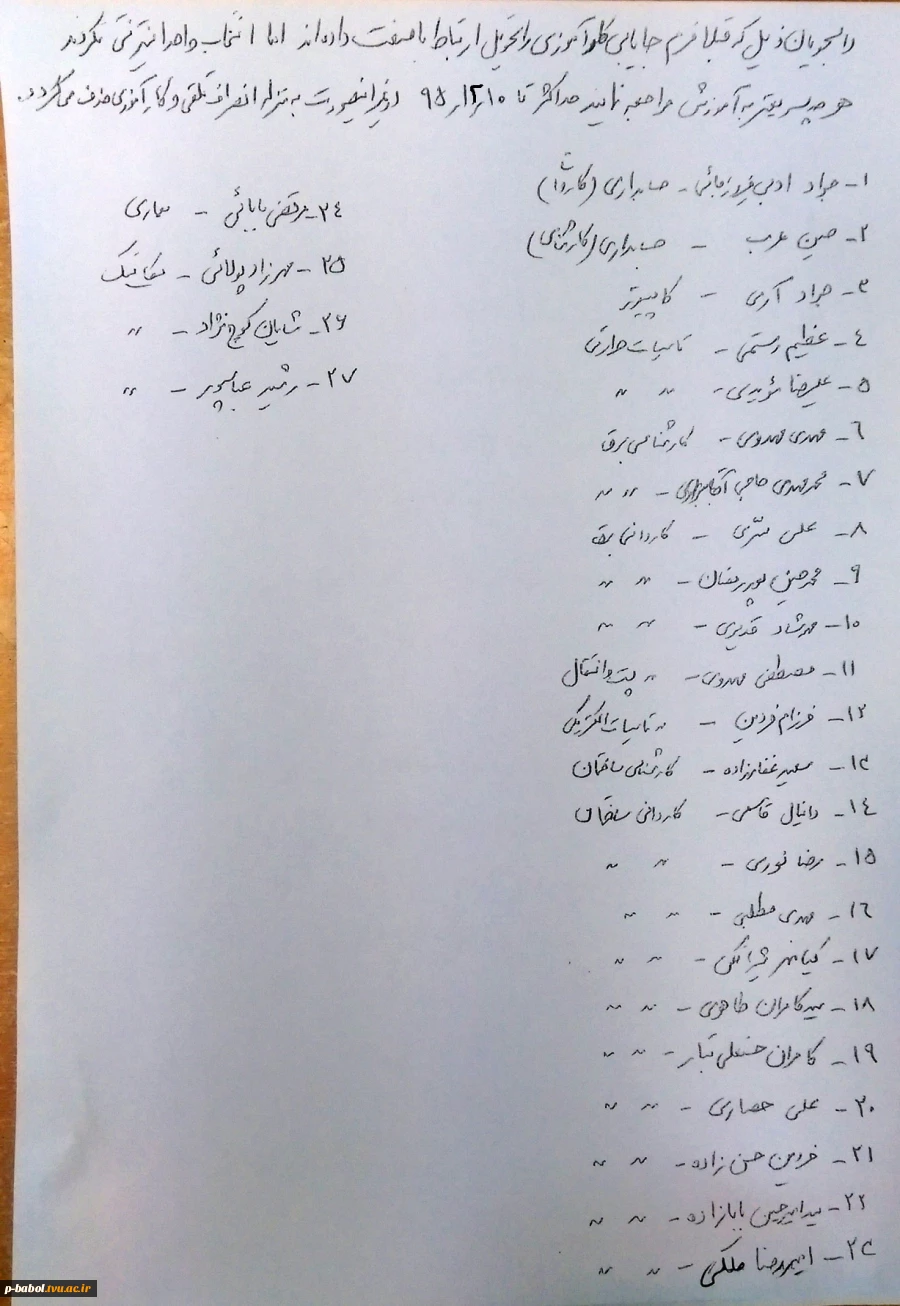 دانشجویان ذیل که قبلا فرم جایابی کارآموزی را تحویل ارتباط با صنعت داده‌اند اما انتخاب واحد اینترنتی نکردند
هر چه سریعتر به آموزش مراجعه نمایند حداکثر تا ۹۵/۱۲/۱۰ در غیر اینصورت به منزله انصراف تلقی و کارآموزی حذف می‌گردد.
۱- جواد ادبی فیروزجائی - حسابداری
۲- حسین عرب - حسابداری (کارشناسی)
۳- جواد آرمی - کامپیوتر
۴- عظیم رستمی - تاسیسات حرارتی
۵- علیرضا مؤیدی - " "
۶- مهدی مهدوی - کارشناسی برق
۷- محمدمهدی حاجی - " "
۸- علی - کاردانی برق
۹- محمدحسین پوررمضان - " "
۱۰- مهرشاد قدیری - " "
۱۱- مصطفی مهدوی - " پست و انتقال
۱۲- فرزام فردین - " تاسیسات الکتریکی
۱۳- سعید غفارزاده - کارشناسی ساختمان
۱۴- دانیال قاسمی - کاردانی ساختمان
۱۵- رضا نوری - " "
۱۶- مهدی مطلبی - " "
۱۷- کیانمهر - " "
۱۸- سیدکامران طاهری - " "
۱۹- کامران حسنعلی تبار - " "
۲۰- علی حصاری - " "
۲۱- فردین حسن زاده - " "
۲۲- سیدامیرحسین بابازاده - " "
۲۳- امیررضا ملکی - " "
۲۴- مرتضی بابائی - معماری
۲۵- مهرزاد پولائی - مکانیک
۲۶- شایان کوچ نژاد - "
۲۷- رشید عباسپور - "
p-babol.tvu.ac.ir